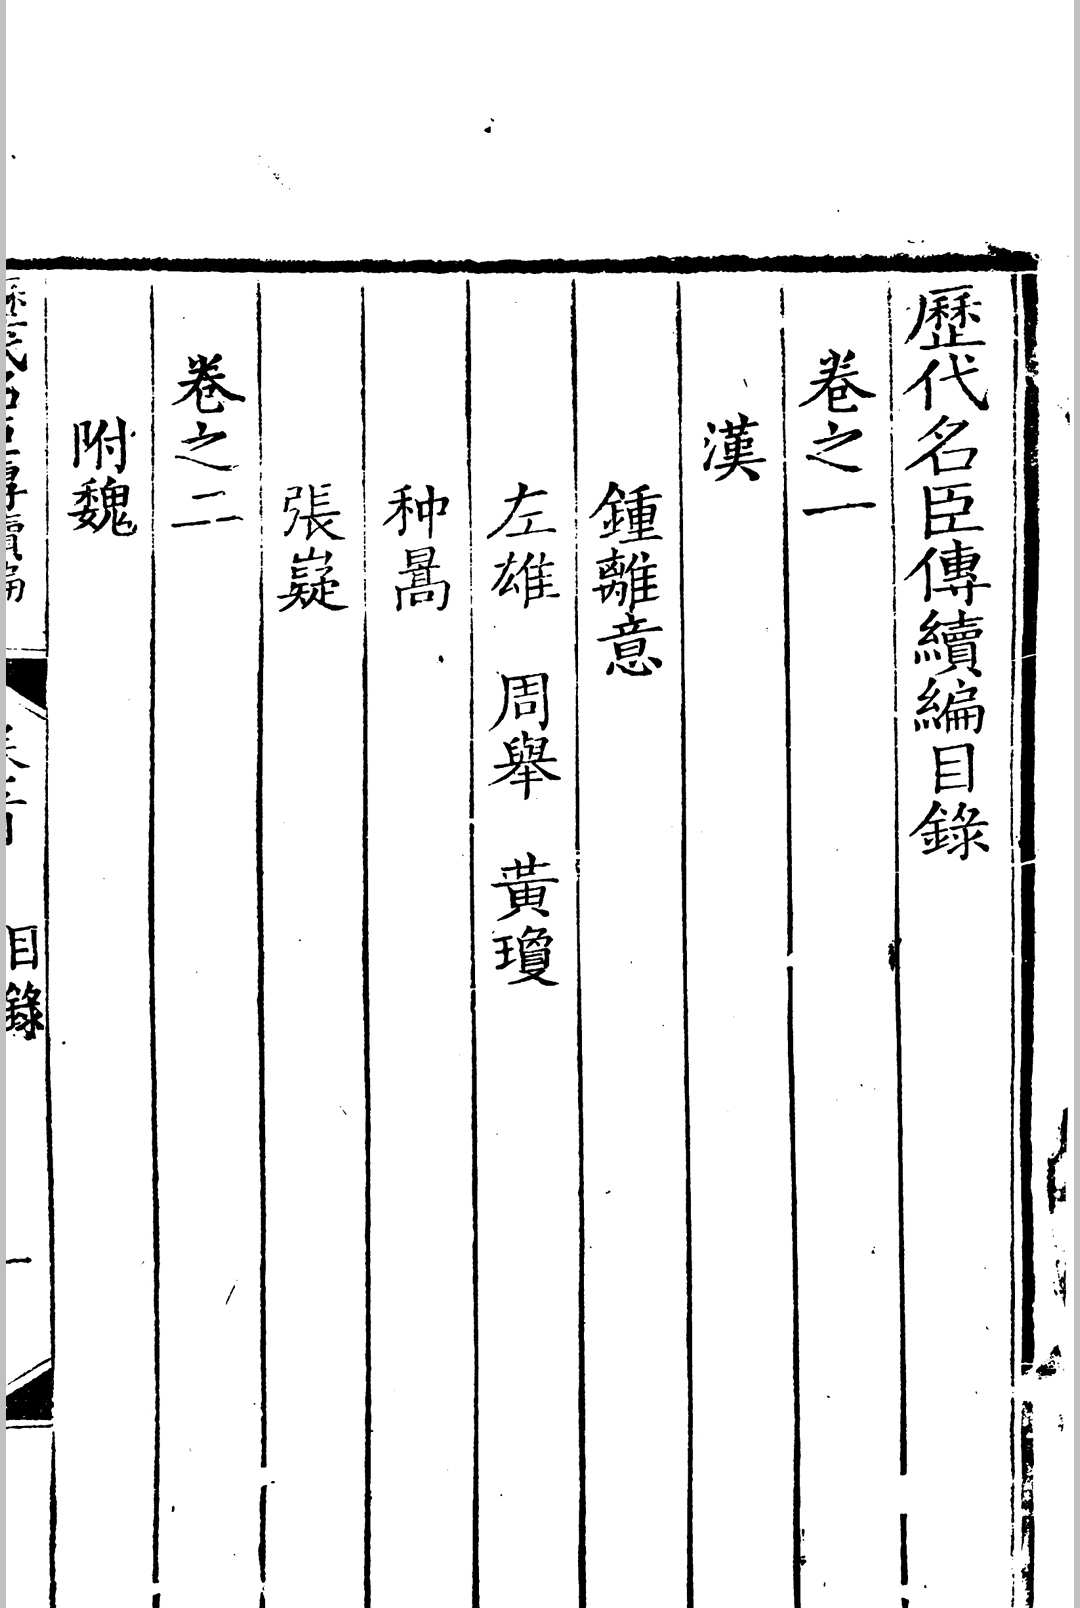 歷代名臣傳續編目錄
卷之一
漢
鍾離意
左雄　周舉　黃瓊
种暠
張嶷
卷之二
附魏
歷代名臣傳續編　卷首　目錄　一